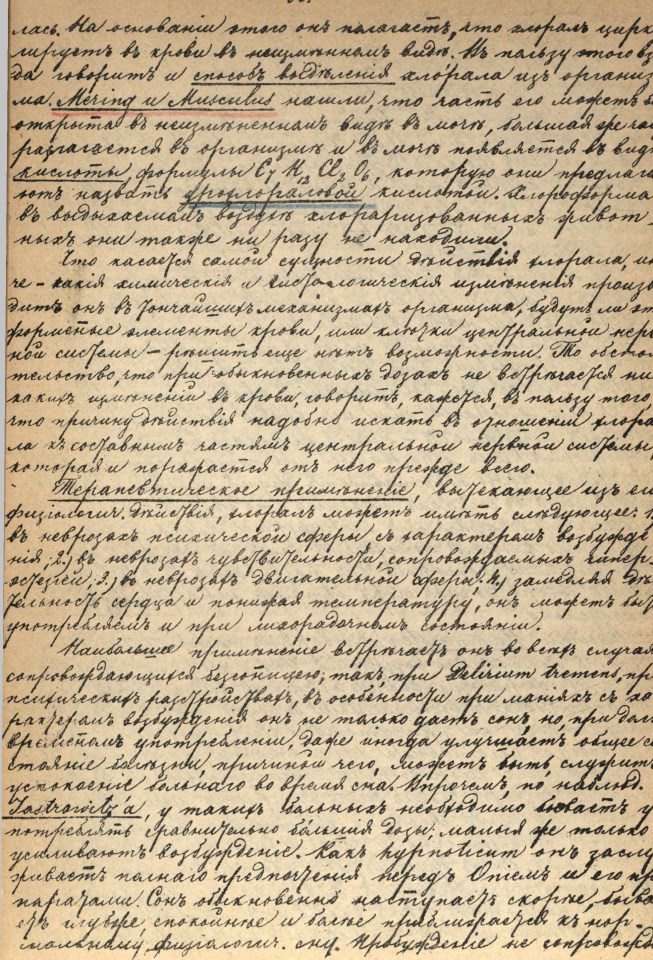 лась. На основаніи этого онъ полагаетъ, что хлоралъ цирк
лируетъ въ крови въ неизмѣнномъ видѣ. Въ пользу этого вз
да говоритъ и способъ выдѣленія хлорала изъ организ
ма. Mering и Musculus нашли, что часть его можетъ
открыта въ неизмѣненномъ видѣ въ мочѣ, большая же ча
разлагается въ организмѣ и въ мочѣ появляется въ видѣ
кислоты, формулы C7 H13 Cl2 O6, которую они предлага
ютъ назвать урохлораловой кислотой. Хлороформа
въ выдыхаемомъ воздухѣ хлорализованныхъ живот
ныхъ они также ни разу не находили.
Что касается самой сущности дѣйствія хлорала, и
че - какія химическія и гистологическія измѣненія произво
дитъ онъ въ тончайшихъ механизмахъ организма, будутъ ли эт
форменые элементы крови, или клѣтки центральной нерв
ной системы - рѣшить еще нѣтъ возможности. То обстоя
тельство, что при обыкновенныхъ дозахъ не встрѣчается ни
какихъ измѣненій въ крови, говоритъ, кажется, въ пользу того,
что причину дѣйствія надобно искать въ отношеніи хлора
ла къ составнымъ частямъ центральной нервной системы,
которая и поражается отъ него прежде всего.
Терапевтическое примѣненіе, вытекающее изъ ег
физіологич. дѣйствія, хлоралъ можетъ имѣть слѣдующее: 1.
въ неврозахъ психической сферы съ характеромъ возбужде
нія; 2.) въ неврозахъ чувствительности сопровождаемыхъ гипер
эстезіей; 3.) въ неврозахъ двигательной сферы; 4.) замедляя дѣя
тельность сердца и понижая температуру, онъ можетъ быт
употребляемъ и при лихорадочномъ состояніи.
Наибольшее примѣненіе встрѣчаетъ онъ во всѣхъ случая
сопровождающихся безсонницею; такъ, при Delirium tremens, пр
психическихъ разстройствахъ, въ особенности при маніяхъ съ ха
рактеромъ возбужденія онъ не только даетъ сонъ, но, при дол
временномъ употребленіи, даже иногда улучшаетъ общее со
стояніе болѣзни, причиной чего, можетъ быть, служитъ
успокоеніе больнаго во время сна. Впрочемъ, по наблюд.
Jastrowitz'a, у такихъ больныхъ необходимо бываетъ у
потреблять сравнительно большія дозы; малыя же только
усиливаютъ возбужденіе. Какъ hypnoticum онъ заслу
живаетъ полнаго предпочтенія передъ Опіемъ и его пре
паратами. Сонъ обыкновенно наступаетъ скорѣе, быва
етъ глубже, спокойнѣе и болѣе приближается къ нор-
мальному физіологич. сну. Пробужденіе не сопровожд